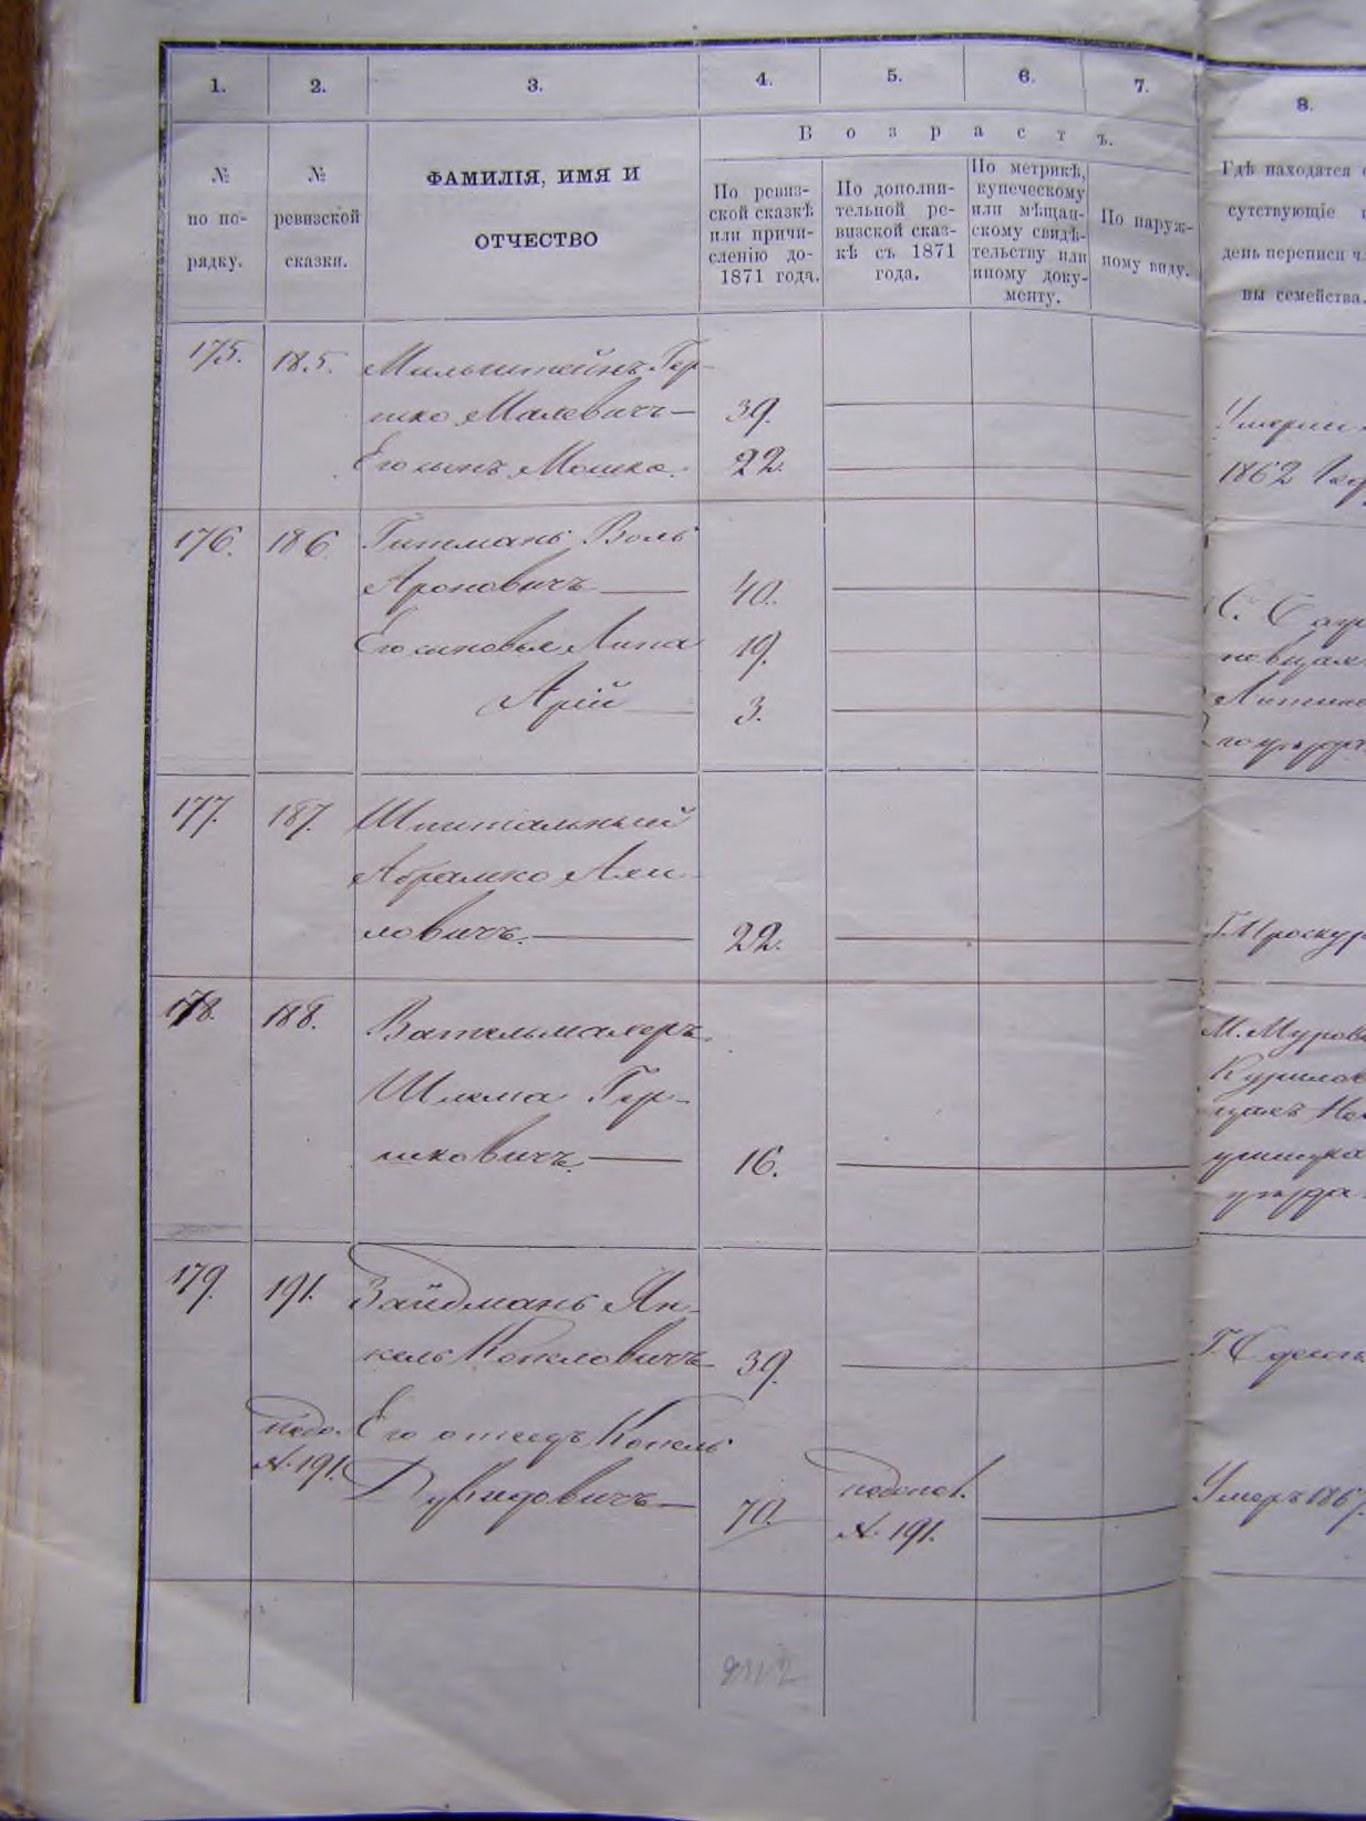 1. 2. 3. 4. 5. 6. 7. 8.
Возрастъ.
№ по по-рядку.
№ ревизской сказки.
ФАМИЛІЯ, ИМЯ И
ОТЧЕСТВО
По ревиз-
ской сказкѣ
или причи-
сленію до-
1871 года.
По дополни-
тельной ре-
визской сказ-
кѣ съ 1871
года.
По метрикѣ,
купеческому
или мѣщан-
скому свидѣ-
тельству или
иному доку-
менту.
По наруж-
ному виду.
Гдѣ находятся
сутствующіе
день переписи
вы семейства.
175. 185. Мильштейнъ Гер-
шко Малевичъ— 39.
Его сынъ Мошко. 22.
1862
176. 186 Гитманъ Воль
Ароновичъ 40.
Его сыновья Липа 19.
Арій 3.
177. 187. Шпитальный
Абрамко
ловичъ. 22.
Г. Проскур
178. 188. Вательмахеръ
Шлема Гер-
шковичъ. 16.
М. Муров
Курилов
179. 191. Зайдманъ Ян-
кель Копеловичъ 39.
Его отецъ Копель
Дувидовичъ— 70.
№ 191.
№ 191.
Умеръ 186